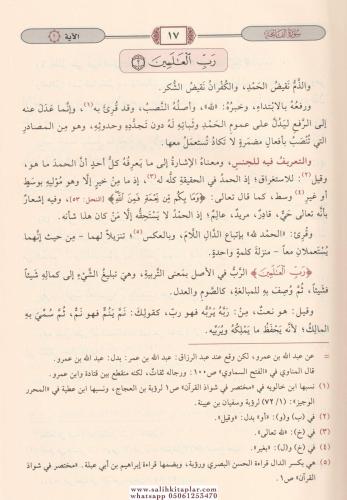 سُورَةُ الفَاتِحَةِ
١٧
الآية
رَبِّ الْعَالَمِينَ
والذَّمُّ نَقيضُ الحَمْدِ، والكُفْرانُ نَقيضُ الشُّكر.
ورفعُهُ بالابتداءِ، وخبرُهُ: «لله»، وأصلُهُ النَّصْبُ، وقد قُرِئَ به(١)، وإنَّما عَدَلَ عنه
إلى الرَّفعِ ليَدُلَّ على عمومِ الحَمْدِ وثَباتِهِ لَهُ دون تجدُّدِهِ وحدوثِهِ، وهو مِن المصادرِ التي
تُنصَبُ بأفعالٍ مضمَرةٍ لا تَكادُ تُستعمَلُ معها.
والتعريفُ فيه للجنسِ، ومعناهُ الإشارةُ إلى ما يَعرِفُهُ كلُّ أحدٍ أنَّ الحمدَ ما هو،
وقيلَ(٢): للاستغراقِ؛ إذِ الحمدُ في الحقيقةِ كلُّه له(٣)، إذ ما مِن خيرٍ إلَّا وهو مُوْليهِ بوسَطٍ
أو غيرِ(٤) وسط، كما قال تعالى: ﴿وَمَا بِكُم مِّن نِّعْمَةٍ فَمِنَ اللَّهِ﴾ [النحل: ٥٣]، وفيه إشعارٌ
بأنَّه تعالى حيٌّ، قادرٌ، مريدٌ، عالِمٌ؛ إذ الحمدُ لا يَستَحِقُّه إلَّا مَنْ كان هذا شأنَه.
وقُرِئَ: «الحمدِ لله» بإتباعِ الدَّالِ اللَّامَ، وبالعكسِ(٥)؛ تنزيلاً لهما – مِن حيث إنَّهما
يُستَعملانِ معاً – منزلةَ كلمةٍ واحدةٍ.
﴿رَبِّ الْعَالَمِينَ﴾ الرَّبُّ في الأصلِ بمعنى التَّربيةِ، وهي تبليغُ الشَّيْءِ إلى كمالِهِ شَيئاً
فشَيئاً، ثُمَّ وُصِفَ بِهِ للمبالغةِ، كالصَّوْمِ والعدلِ.
وقيل: هو نعتٌ، مِنْ: رَبَّهُ يَرُبُّه فهو ربّ، كقولِكَ: نَمَّ يَنُمُّ فهو نَمٌّ، ثُمَّ سُمِّيَ بِهِ
المالِكُ؛ لأنَّه يَحْفَظُ ما يَمْلِكُهُ ويُرَبِّيهِ.
= عن عبد الله بن عمرو، لكن وقع عند عبد الرزاق: عبد الله بن عمر، بدل: عبد الله بن عمرو.
قال المناوي في «الفتح السماوي» ص١٠٠: ورجاله ثقات، لكنه منقطع بين قتادة وابن عمرو.
(١) نسبها ابن خالويه في «مختصر في شواذ القرآن» ص١ لرؤبة بن العجاج، ونسبها ابن عطية في «المحرر
الوجيز»: (١/ ٧٢) لرؤبة وسفيان بن عيينة.
(٢) في (ب) و(و): «أو» بدل: «وقيل».
(٣) في (خ): «لله تعالى».
(٤) في (خ) و(ل): «بغير».
(٥) هي بكسر الدال قراءة الحسن البصري ورؤبة، وبضمها قراءة إبراهيم بن أبي عبلة. «مختصر في شواذ
القرآن» ص١.
www.salihkitaplar.com
whatsapp 05061253470